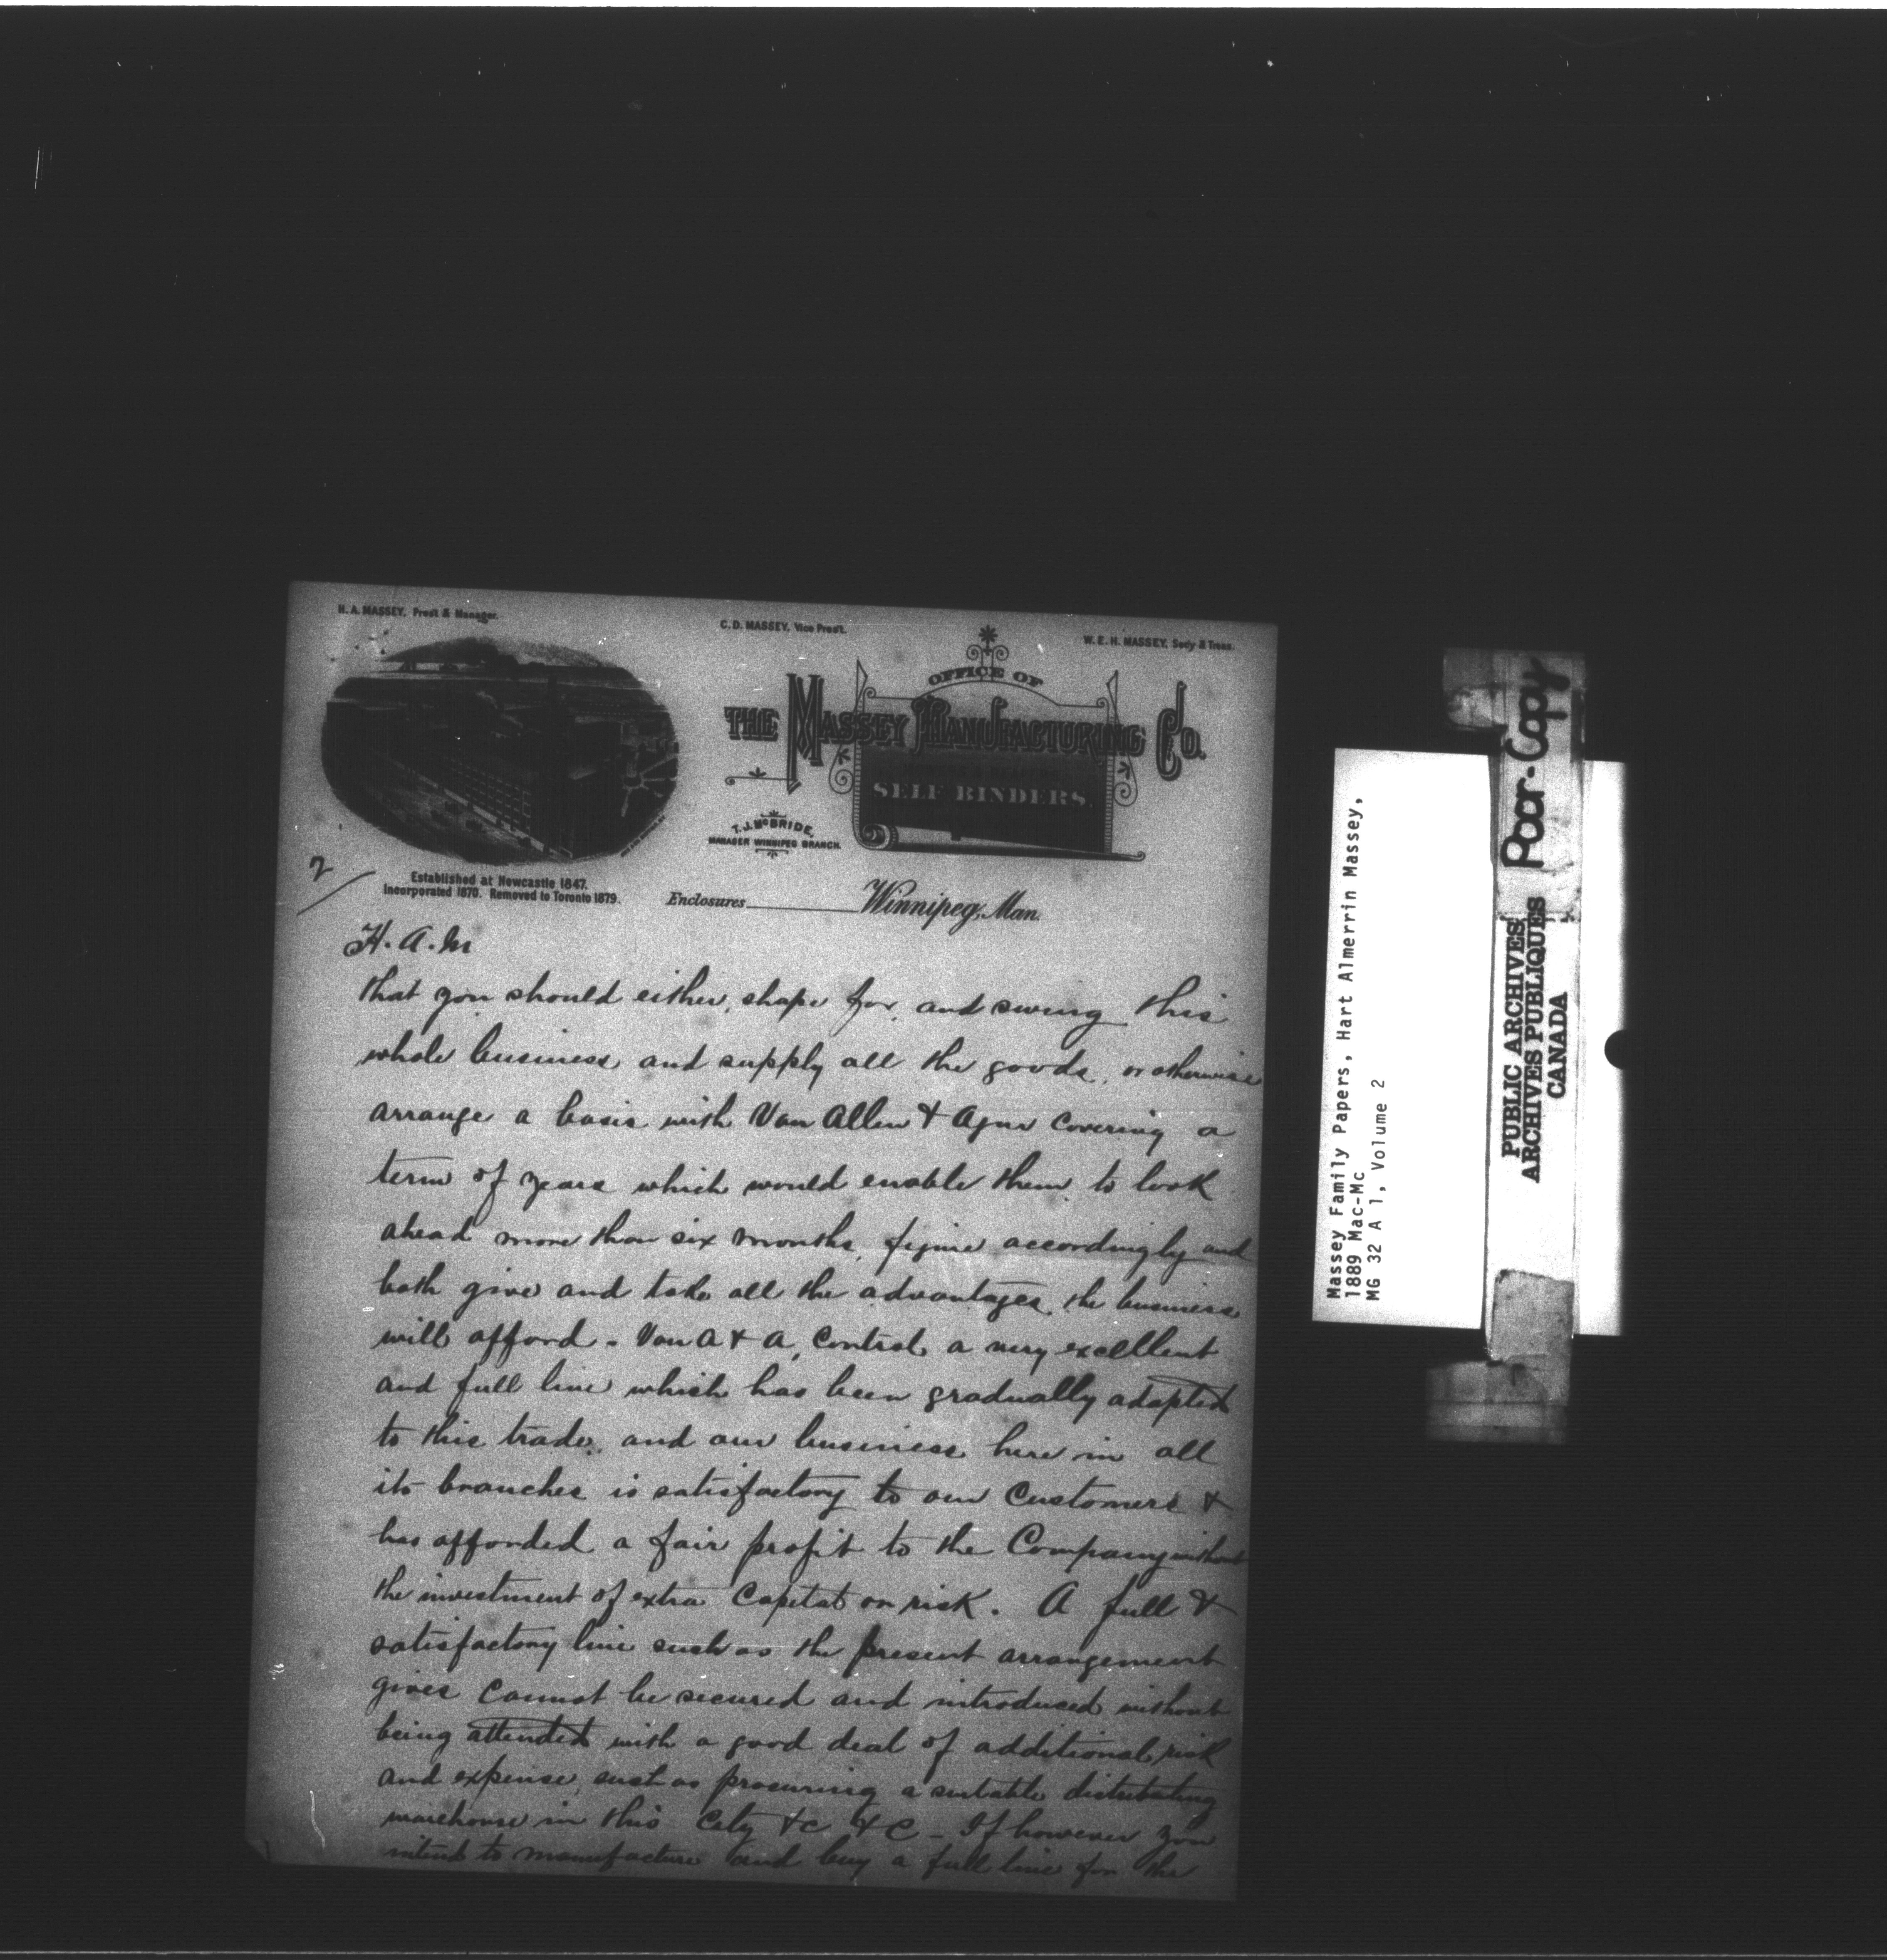 H. A. MASSEY, Prest & Manager.
C. D. MASSEY, Vice Prest.
W. E. H. MASSEY, Secy & Treas.
OFFICE OF
THE MASSEY MANUFACTURING CO.
MOWERS & REAPERS
SELF BINDERS.
T. J. McBRIDE,
MANAGER WINNIPEG BRANCH.
2/
Established at Newcastle 1847.
Incorporated 1870. Removed to Toronto 1879.
Enclosures
Winnipeg, Man.
H. A. M
that you should either, shape for, and swing this
whole business and supply all the goods, or otherwise
arrange a basis with Van Allen & Agur covering a
term of years which would enable them to look
ahead more than six months, figure accordingly and
both give and take all the advantages, the business
will afford. - Van A & A, Control a very excellent
and full line which has been gradually adapted
to this trade, and our business here in all
its branches is satisfactory to our Customers &
has afforded a fair profit to the Company without
the investment of extra Capital or risk. A full &
satisfactory line such as the present arrangement
gives Cannot be secured and introduced without
being attended with a good deal of additional risk
and expense, such as procuring a suitable distributing
warehouse in this City &c &c - If however you
intend to manufacture and buy a full line for the
Massey Family Papers, Hart Almerrin Massey,
1889 Mac-Mc
MG 32 A 1, Volume 2
Poor-Copy
PUBLIC ARCHIVES
ARCHIVES PUBLIQUES
CANADA